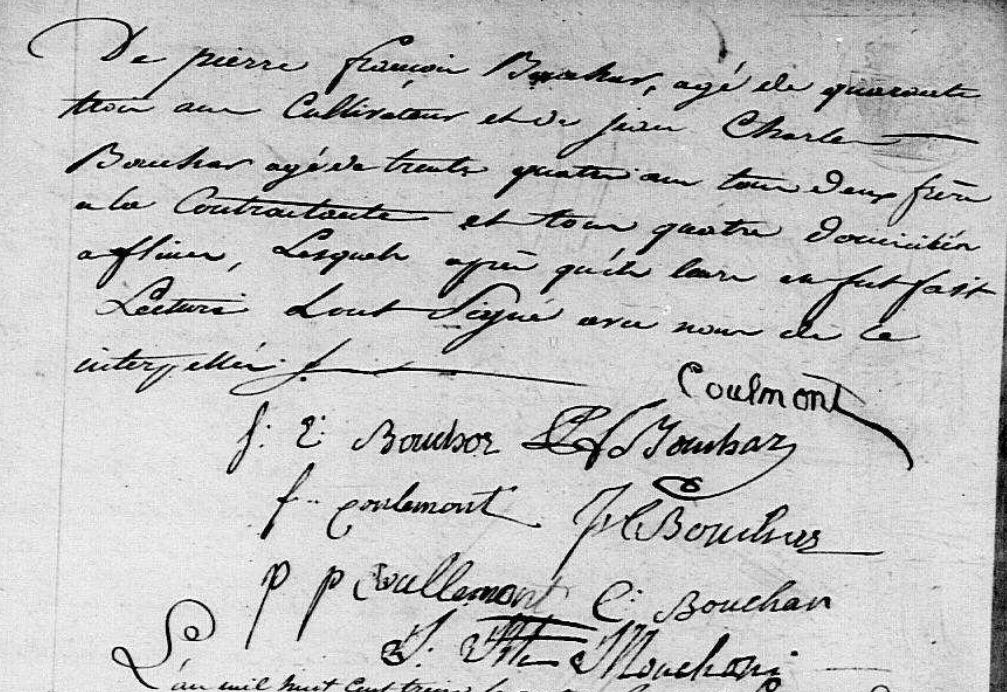 De pierre françois Bouchar, agé de quarante
trois ans Cultivateur et de jean Charles
Bouchar agé de trente quatre ans tous deux frère
a la Contractante et tous quatre domiciliés
a flines, Lesquels après qu'il leurs en fut fait
Lecture L'ont Signé avec nous de ce
interpellés
Coulmont
f: E: Bouchor PF Bouchar
f.. coulemont J C Bouchar
p p Coullemont C: Bouchar
L'an mil huit cent treize le